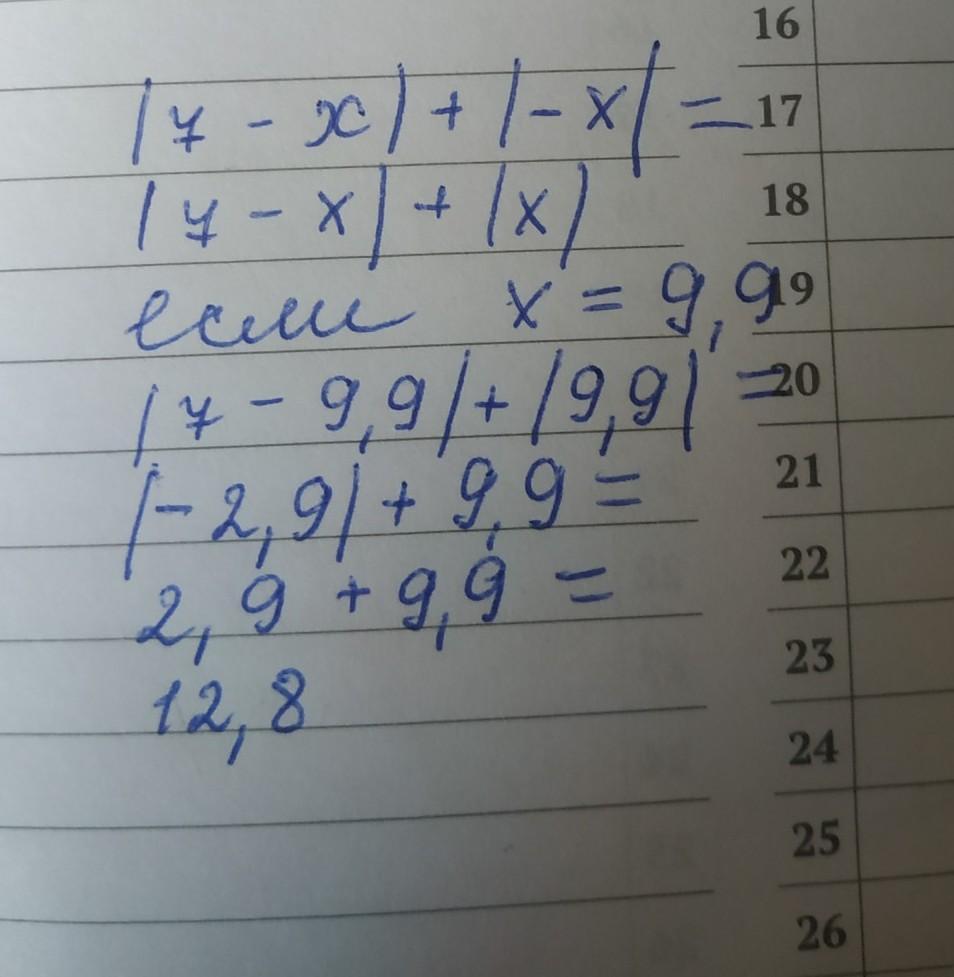 16
|7 - x| + |-x| = 17
|7 - x| + |x| 18
если x = 9,9 19
|7 - 9,9| + |9,9| = 20
|-2,9| + 9,9 = 21
2,9 + 9,9 = 22
12,8 23
24
25
26